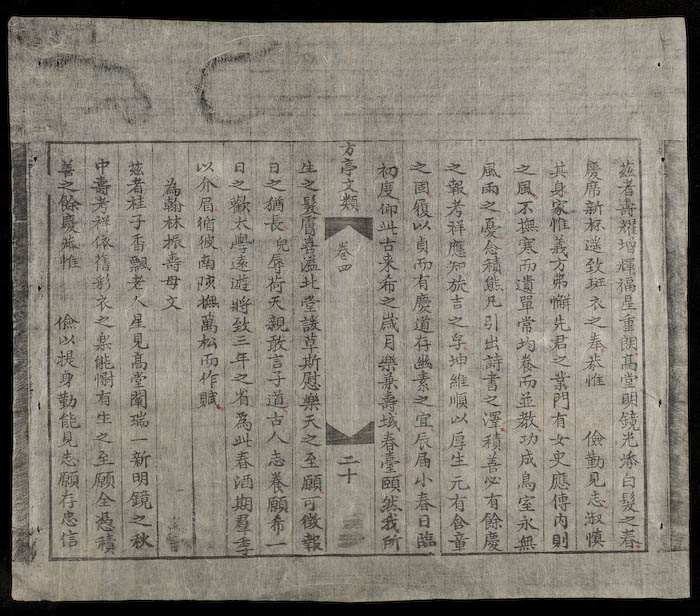 茲者壽耀增輝福星重朗髙堂明鏡光添白髮之春
慶席新杯遥致斑衣之奉恭惟　儉勤見志淑慎
其身家惟義方弗懈先君之業門有女史應傳內則
之風不撫寒而遺單常均養而並教功成鳥室永無
風雨之憂念積熊凡引出詩書之澤積善必有餘慶
之報考祥應知旅吉之孚坤維順以厚生元有食童
之固履以貞而有慶道存幽素之宜辰屆小春日臨
初度仰此古来希之歲月樂兼壽域春臺頤然我所
方亭文類
卷四
二十
生之髮膚喜溫北堂諼草斯慰樂天之至願可徵報
日之猶長兒辱荷天親敢言子道古人志養願希一
日之歡太學逺遊將致三年之省為此春酒期羣季
以介眉循彼南陔撫萬松而作賦
為翰林振壽母文
茲者桂子香飄老人星見髙堂闡瑞一新明鏡之秋
中壽考祥依舊彩衣之樂能惻有生之至願全憑積
善之餘慶恭惟　儉以提身勤能見志願存忠信